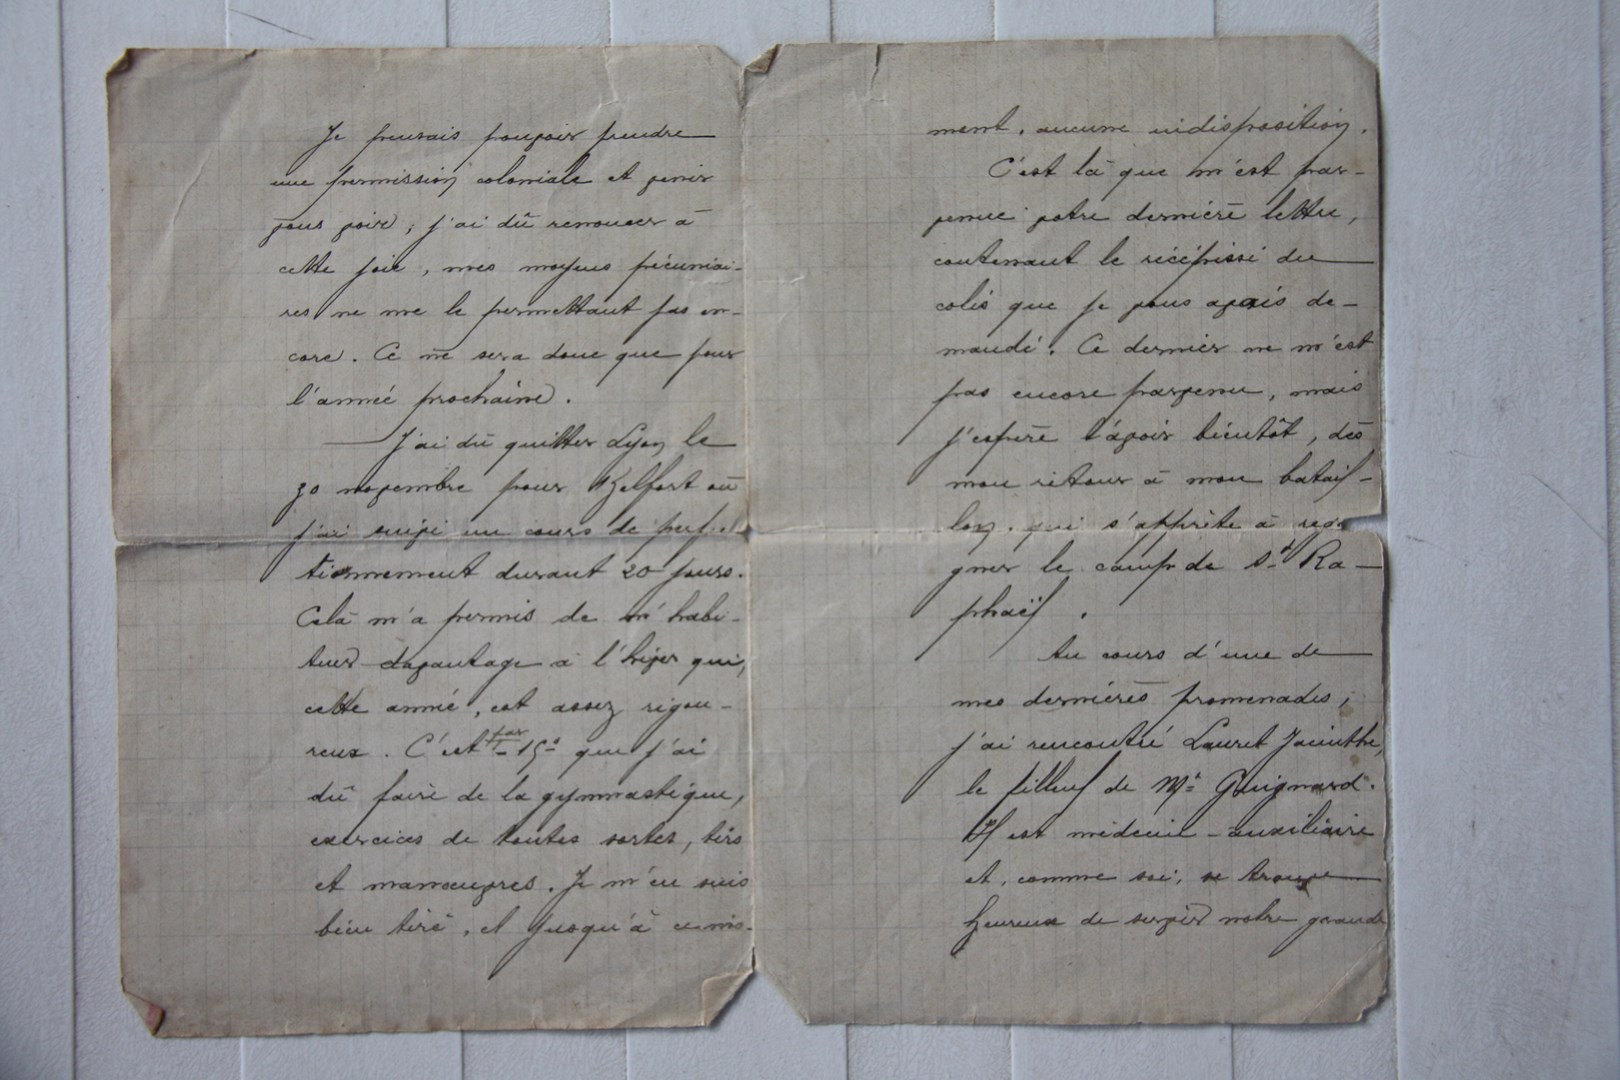 Je pensais pouvoir prendre
une permission coloniale et venir
vous voir ; j'ai dû renoncer à
cette joie, mes moyens pécuniai-
res ne me le permettant pas en-
core. Ce ne sera donc que pour
l'année prochaine.
J'ai dû quitter Lyon le
30 novembre pour Belfort où
j'ai suivi un cours de perfec
tionnement durant 20 jours.
Cela m'a permis de m'habi-
tuer davantage à l'hiver qui,
cette année, est assez rigou-
reux. C'est par - 15° que j'ai
dû faire de la gymnastique,
exercices de toutes sortes, tirs
et manoeuvres. Je m'en suis
bien tiré, et jusqu'à ce mo-
ment, aucune indisposition.
C'est là que m'est par-
venue votre dernière lettre,
contenant le récépissé du
colis que je vous avais de-
mandé. Ce dernier ne m'est
pas encore parvenu, mais
j'espère l'avoir bientôt, dès
mon retour à mon batail-
lon, qui s'apprête à rega
gner le camp de St Ra-
phaël.
Au cours d'une de
mes dernières promenades,
j'ai rencontré Lauret Jacinthe,
le filleul de Mr Guignard.
Il est médecin-auxiliaire
et, comme moi, se trouve
heureux de servir notre grande